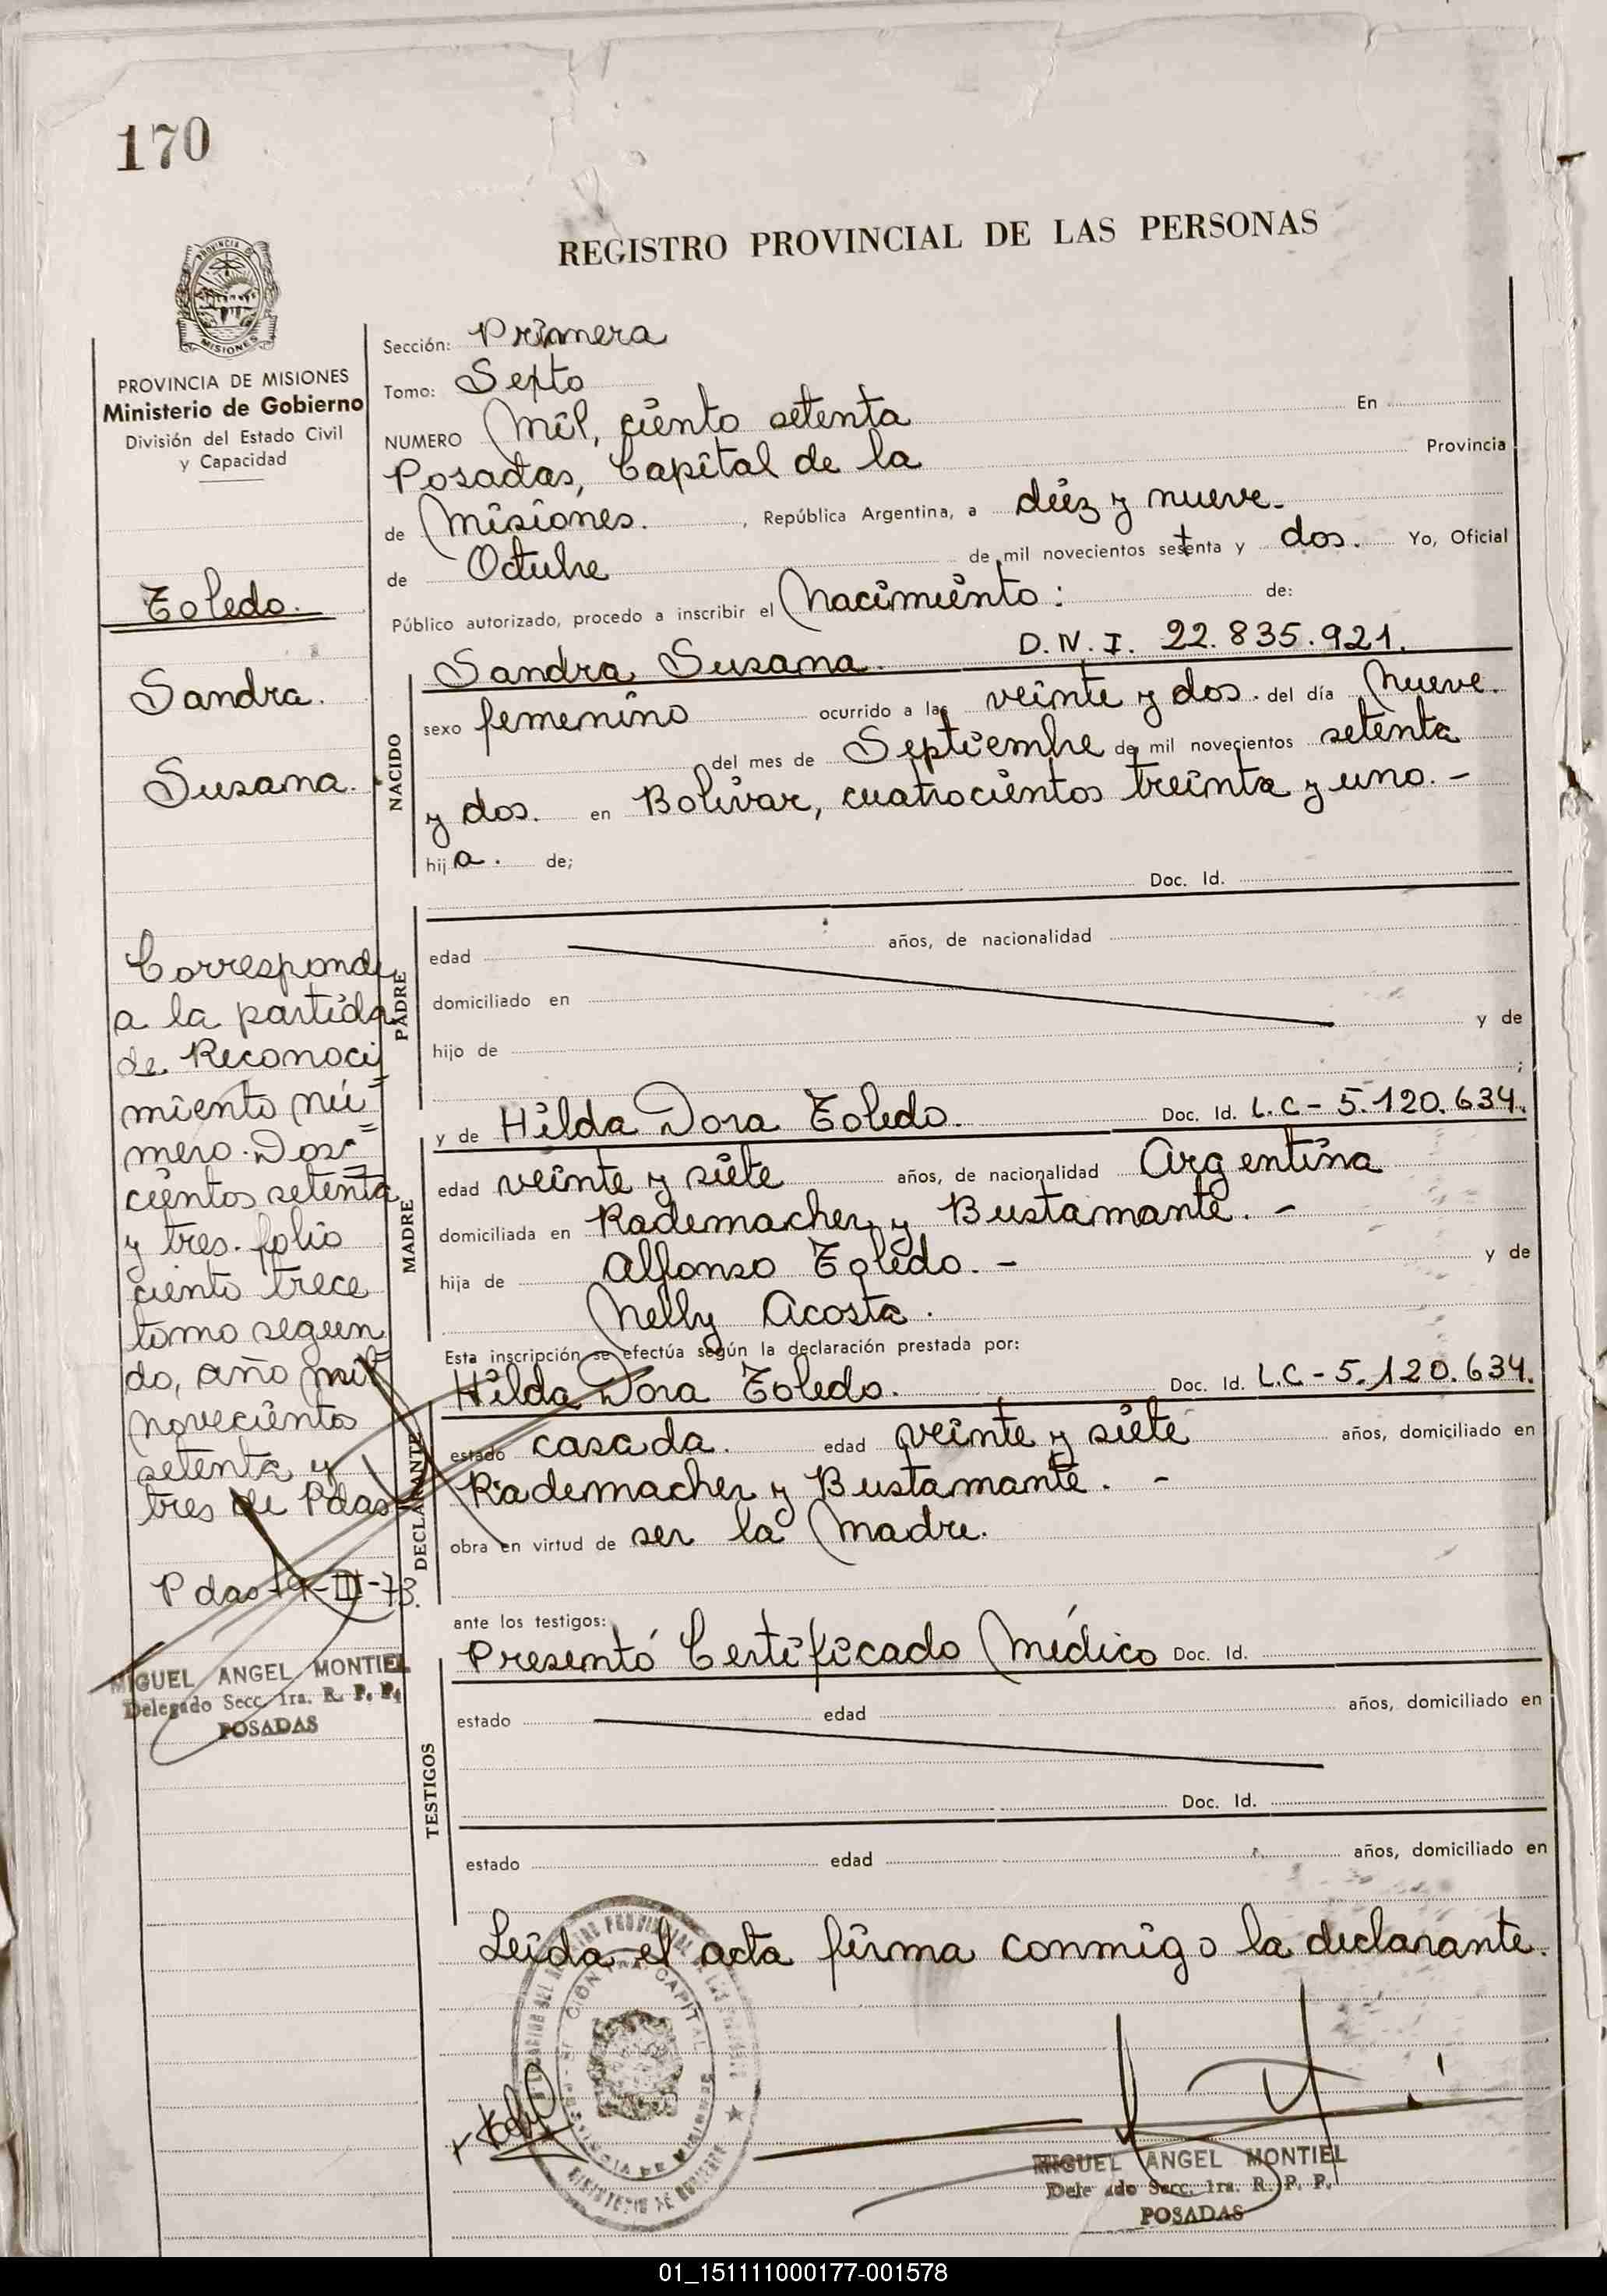 170
REGISTRO PROVINCIAL DE LAS PERSONAS
PROVINCIA DE MISIONES
Ministerio de Gobierno
División del Estado Civil
y Capacidad
Toledo.
Sandra.
Susana.
Corresponde
a la partida
de Reconoci
miento nú=
mero. Dos=
cientos setenta
y tres. folio
ciento trece
tomo segun=
do, año mil
novecientos
setenta y
tres de Pdas
Pdas-9-III-73.
MIGUEL ANGEL MONTIEL
Delegado Secc. 1ra. R. P. P.
POSADAS
Sección: Primera
Tomo: Sexto
NUMERO Mil, ciento setenta En
Posadas, Capital de la Provincia
de Misiones. , República Argentina, a diez y nueve.
de Octubre de mil novecientos setenta y dos. Yo, Oficial
Público autorizado, procedo a inscribir el Nacimiento: de:
Sandra Susana. D.N.I. 22.835.921.
NACIDO
sexo femenino ocurrido a las veinte y dos. del día Nueve.
del mes de Septiembre de mil novecientos setenta
y dos. en Bolívar, cuatrocientos treinta y uno. -
hija. de;
Doc. Id.
PADRE
edad años, de nacionalidad
domiciliado en
hijo de y de
;
y de Hilda Dora Toledo. Doc. Id. L.C-5.120.634.
MADRE
edad veinte y siete años, de nacionalidad Argentina
domiciliada en Rademacher y Bustamante. -
hija de Alfonso Toledo. - y de
Nelly Acosta.
Esta inscripción se efectúa según la declaración prestada por:
Hilda Dora Toledo. Doc. Id. L.C-5.120.634.
DECLARANTE
estado casada. edad veinte y siete años, domiciliado en
Rademacher y Bustamante. -
obra en virtud de ser la Madre.
ante los testigos:
Presentó Certificado Médico Doc. Id.
TESTIGOS
estado edad años, domiciliado en
Doc. Id.
estado edad años, domiciliado en
Leída el acta firma conmigo la declarante.
MIGUEL ANGEL MONTIEL
Dele ado Secc. 1ra. R. P. P.
POSADAS
01_151111000177-001578